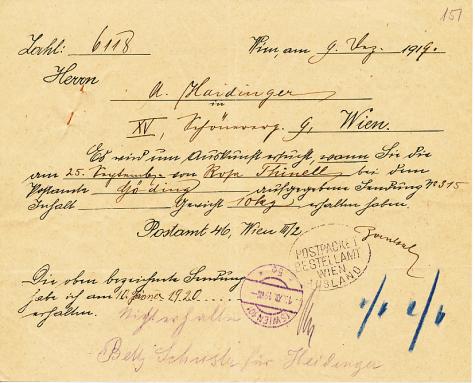 151
Zahl: 6118 Wien, am 9. Dez. 1919.
Herrn
A. Haidinger
in
XV, Schönererg. 9, Wien.
Es wird um Auskunft ersucht, wann Sie die
am 25. September von Rosa Thinell bei dem
Postamte Göding aufgegebene Sendung No 315
Inhalt Gewicht 10 kg erhalten haben.
Postamt 46, Wien III/2
POSTPACKET
BESTELLAMT
WIEN
AUSLAND
Die oben bezeichnete Sendung
habe ich am 10. Jänner 1920
erhalten.
WIEN
Nicht erhalten
Betty Schuste für Heidinger